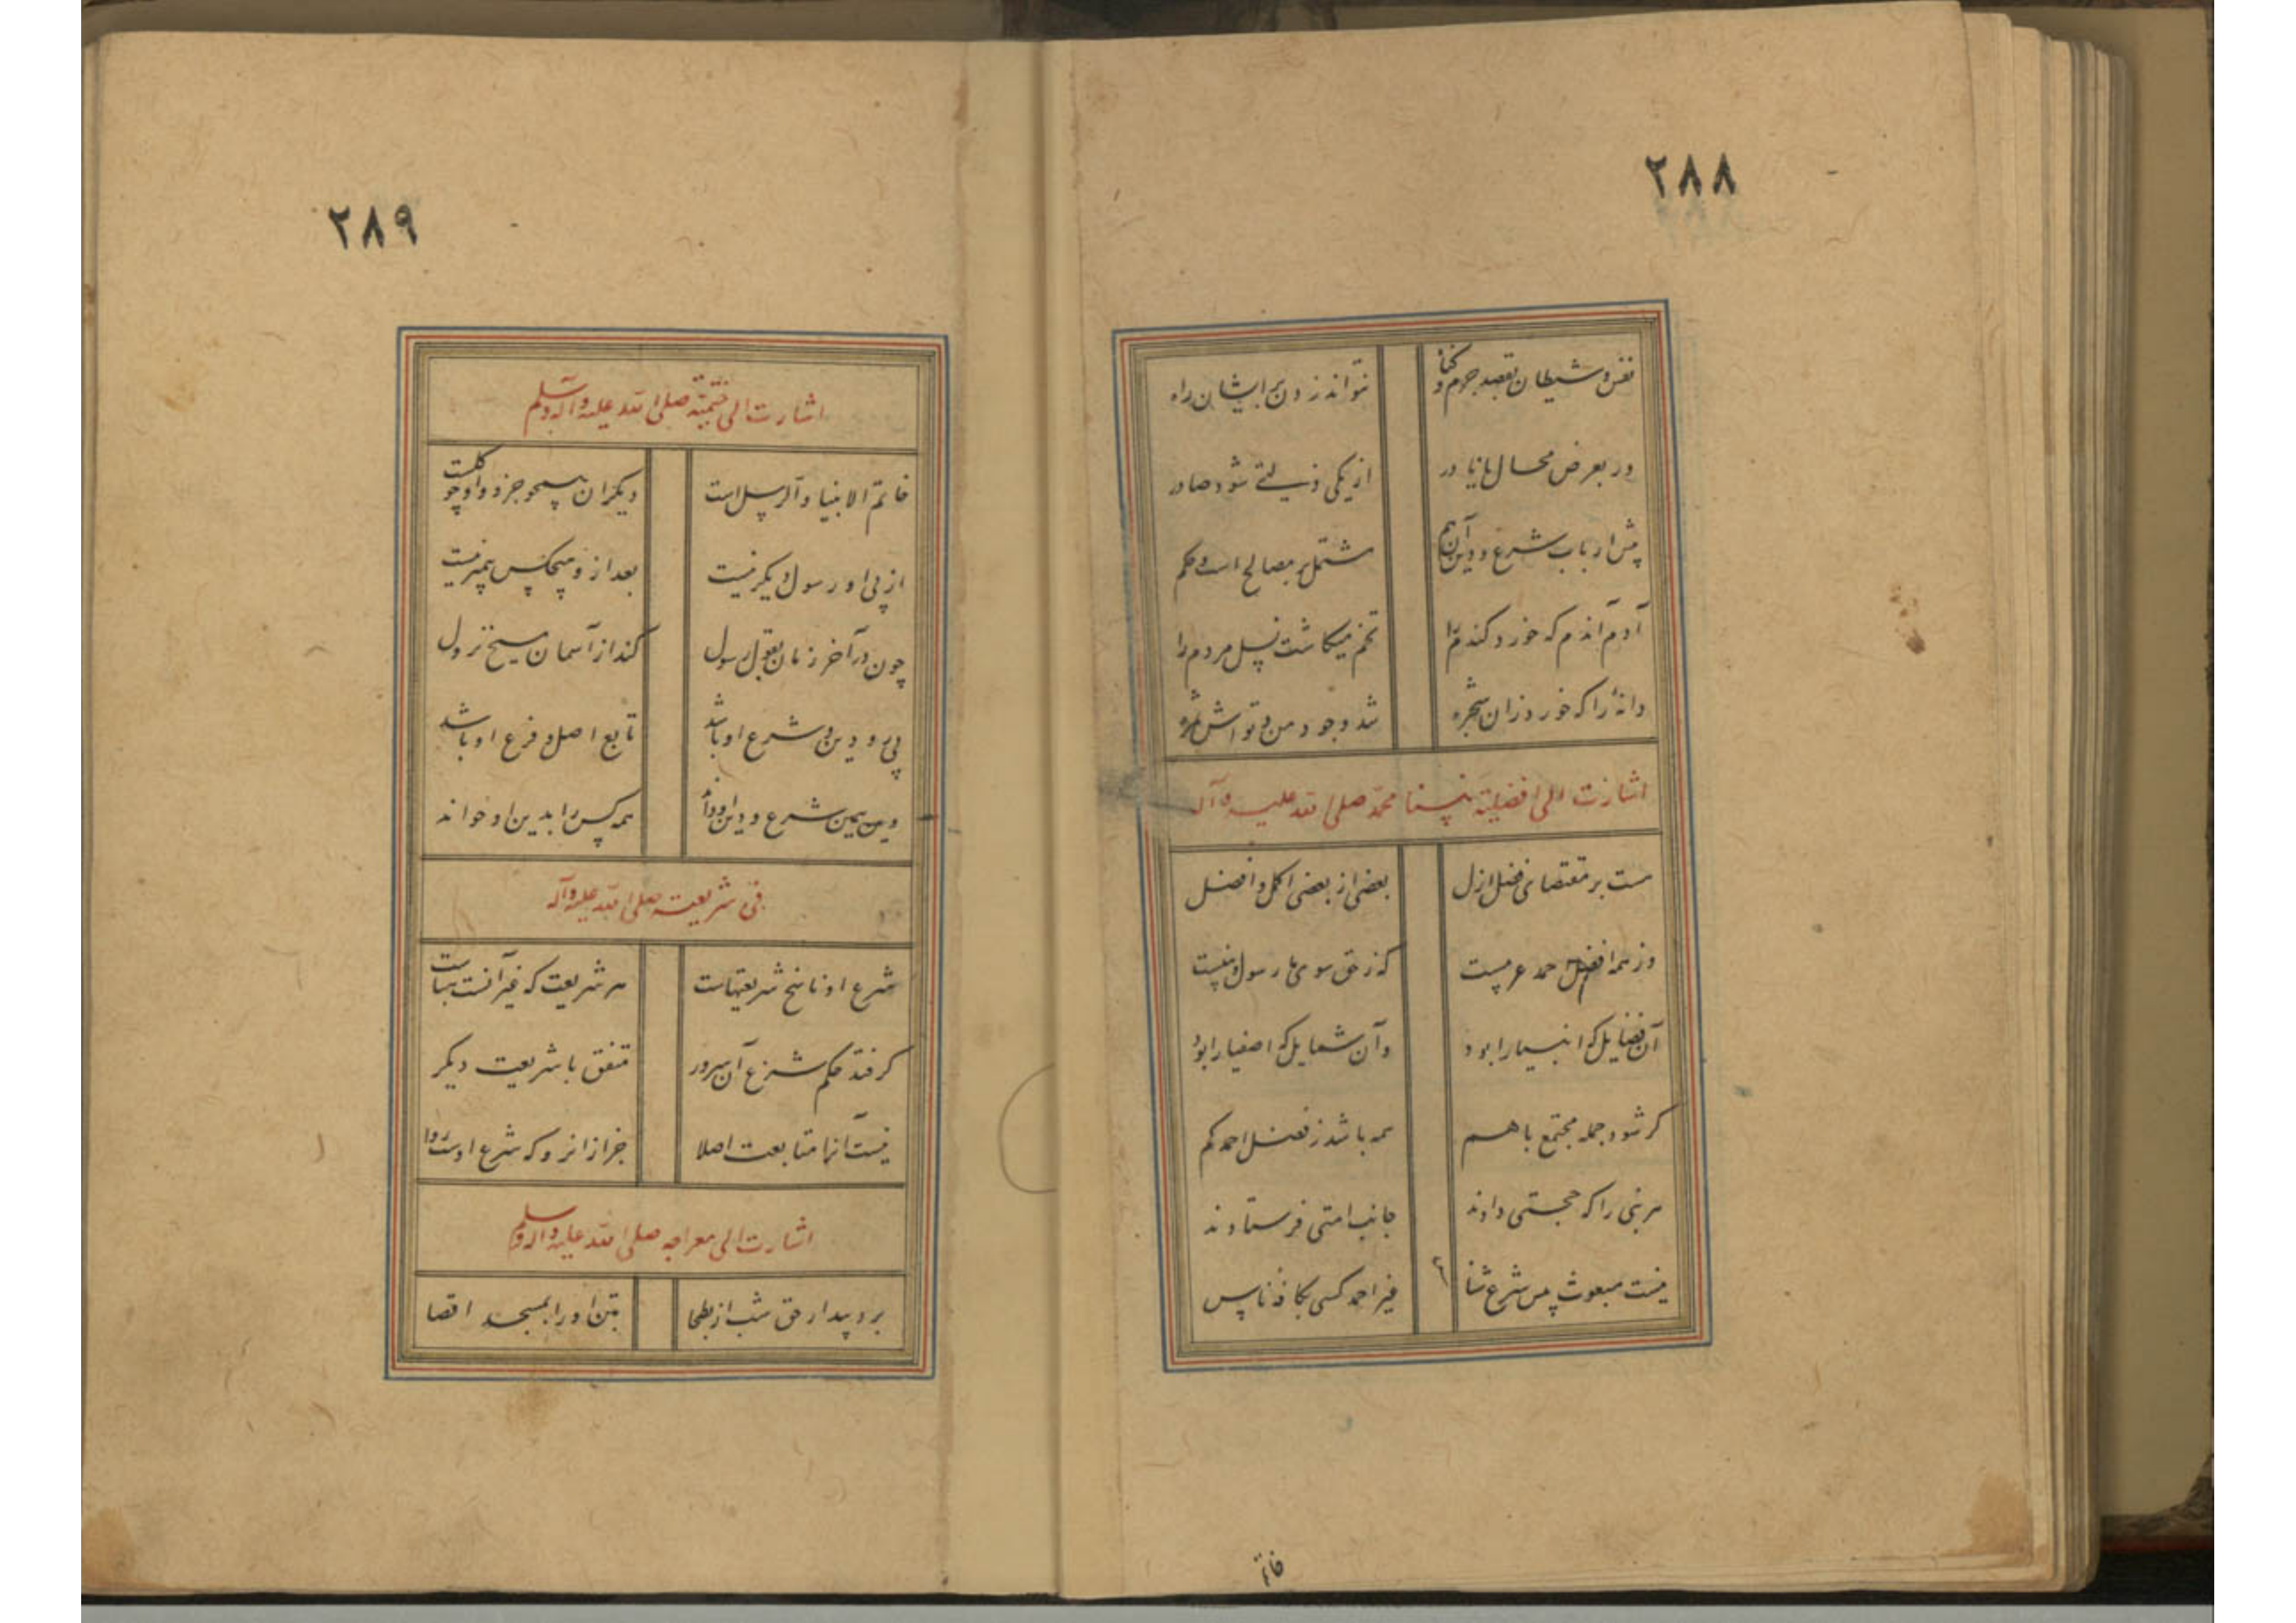 ۲۸۸
نفس و شیطان بقصد جرم و گناه نتواند زدن بر ایشان راه
ور بعرض محال یا نادر از یکی زلتی شود صادر
پیش ارباب شرع و دین آن هم مشتمل بر مصالح است و حکم
آدم آندم که خورد گندم را تخم میکاشت نسل مردم را
دانهٔ را که خورد زان شجره شد وجود من و تواش ثمره
اشارت الی افضلیة نبینا محمد صلی الله علیه وآله
هست بر مقتضای فضل ازل بعضی از بعضی اکمل و افضل
وز همه افضل احمد عربیست که ز حق سوی ما رسول و نبیست
آن فضایل که انبیا را بود وآن شمایل که اصفیا را بود
گر شود جمله مجتمع با هم همه باشد ز فضل احمد کم
هر نبی را که حجتی دادند جانب امتی فرستادند
نیست مبعوث پیش شرع شناس غیر احمد کسی بکافهٔ ناس
خاتم
۲۸۹
اشارت الی ختمیته صلی الله علیه وآله وسلم
خاتم الانبیاء والرسل است دیگران همچو جزو و او چو کلست
از پی او رسول دیگر نیست بعد ازو هیچکس پیمبر نیست
چون در آخر زمان بقول رسول کند از آسمان مسیح نزول
پی رو دین و شرع او باشد تابع اصل و فرع او باشد
دین همین شرع و دین او داند همه کس را بدین او خواند
فی شریعته صلی الله علیه وآله
شرع او ناسخ شریعتهاست هر شریعت که غیر آنست هباست
گرفتد حکم شرع آن سرور متفق با شریعت دیگر
نیست آنرا متابعت اصلا جز ازانرو که شرع اوست روا
اشارت الی معراجه صلی الله علیه وآله وسلم
برد بیدار حق شب از بطحا بتن او را بمسجد اقصا